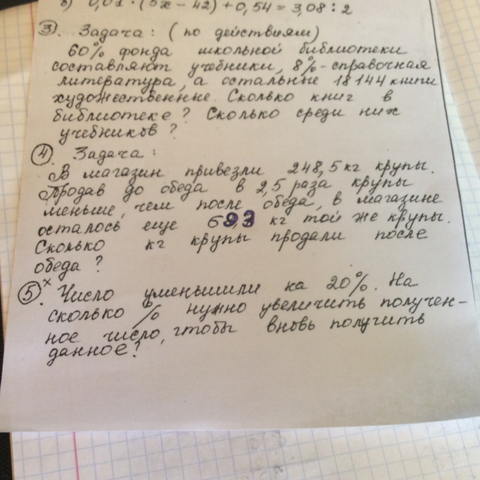 б) 0,01 · (5x - 42) + 0,54 = 3,08 : 2
③. Задача: (по действиям)
60% фонда школьной библиотеки
составляют учебники, 8% - справочная
литература, а остальные 18144 книги
художественные. Сколько книг в
библиотеке? Сколько среди них
учебников?
④. Задача:
В магазин привезли 248,5 кг крупы.
Продав до обеда в 2,5 раза крупы
меньше, чем после обеда, в магазине
осталось еще 69,3 кг той же крупы.
Сколько кг крупы продали после
обеда?
⑤ˣ. Число уменьшили на 20%. На
сколько % нужно увеличить получен-
ное число, чтобы вновь получить
данное?